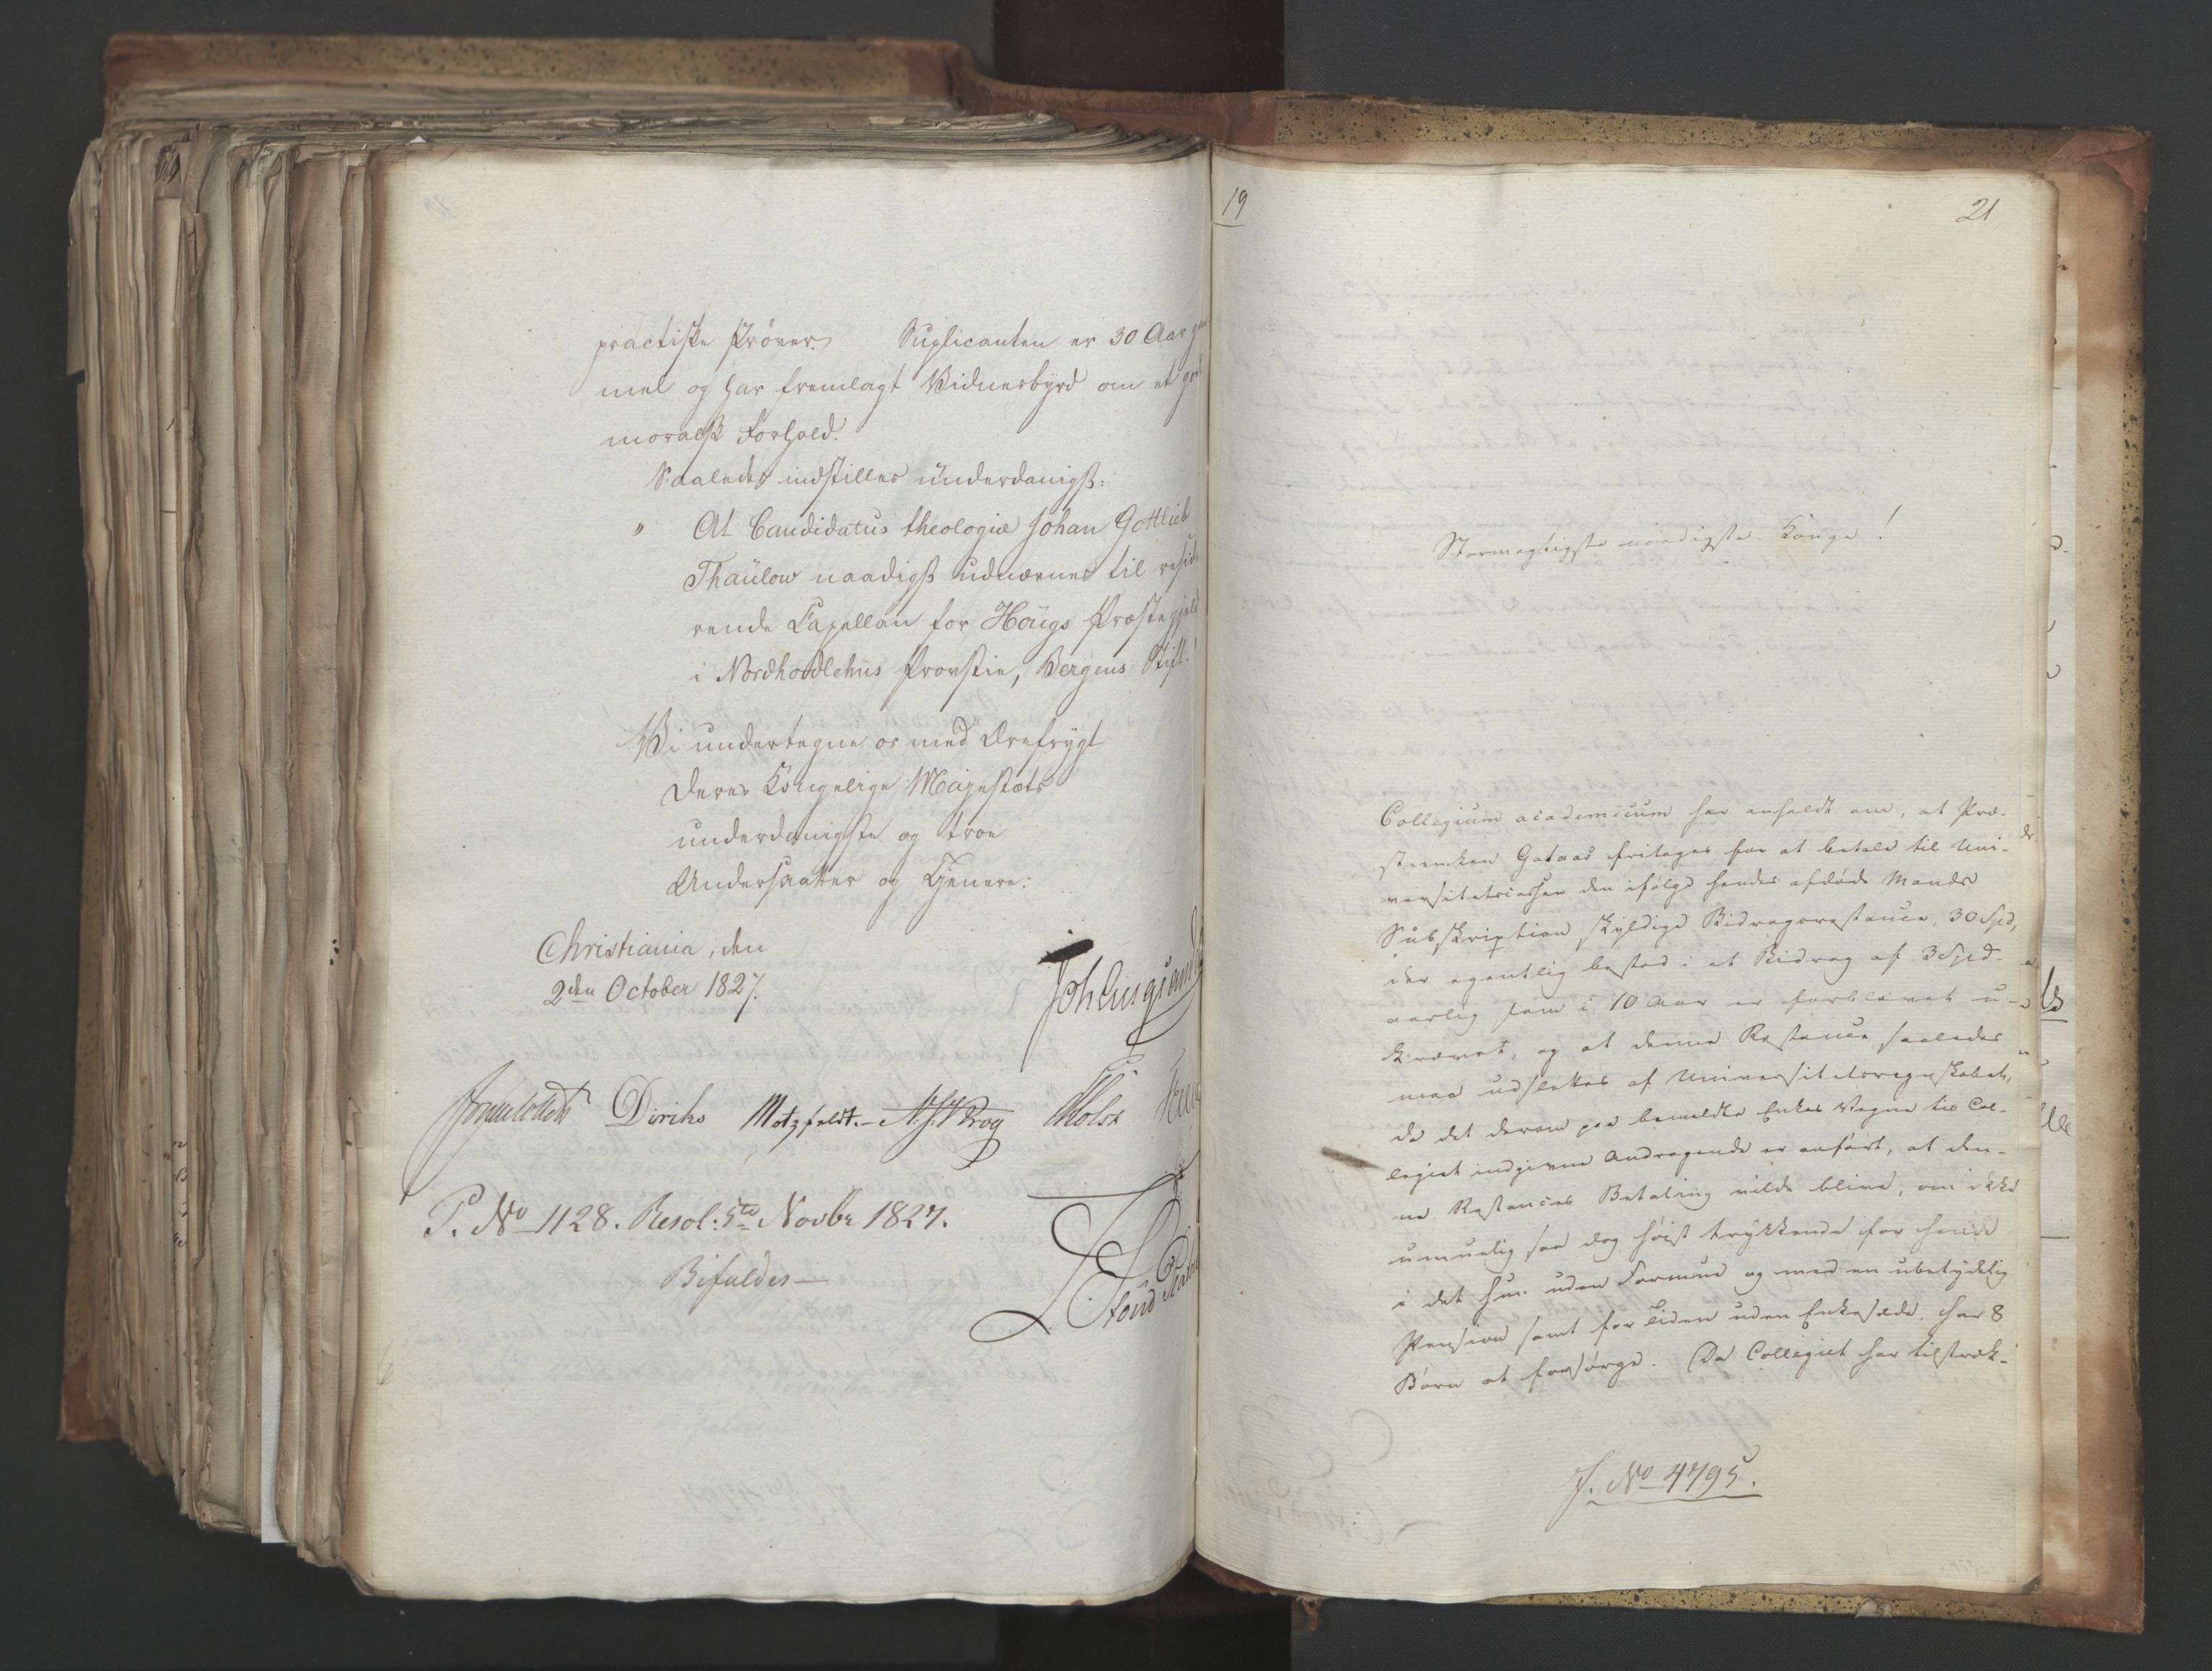 practiske Prøver. Suplicanten er 30 Aar
mel og har fremlagt Vidnesbyrd om et
moralsk Forhold.
Saaledes indstilles underdanigst:
" At Candidatus theologiæ Johan Gottlieb
Thaülow naadigst udnævnes til resid
rende Capellan for Hougs Præstegjeld
i Nordhordlehns Provstie, Bergens Stift.
Vi undertegne os med Ærefrygt
Deres Kongelige Majestæts
underdanigste og troe
Undersaatter og Tjenere:
Christiania, den
2den October 1827.
Diriks Motzfeldt. Krog Holst
P. No 1128. Resol: 5te Novbr 1827.
Bifaldes
19
21
Stormægtigste naadigste Konge!
Collegium academicum har anholdt om, at Præ-
steenken Gataas fritages for at betale til Uni-
versitetscassen den ifølge hendes afdøde Mands
Subskription skyldige Bidragsrestance, 30 Spd,
der egentlig bestod i et Bidrag af 3 Spd.
aarlig som i 10 Aar er forblevet u-
krævet, og at denne Restance saaledes
maa udslettes af Universitetsregnskabet,
da det derom paa bemeldte Enkes Vegne til Col-
legiet indgivne Andragende er anført, at den-
ne Restances Betaling vilde blive, om ikke
umuelig saa dog høist trykkende for hende
i det hun uden Formue og med en ubetydelig
Pension samt for Tiden uden Enkesæde, har 8
Børn at forsørge. Da Collegiet har tilstræk-
J. No 4795.